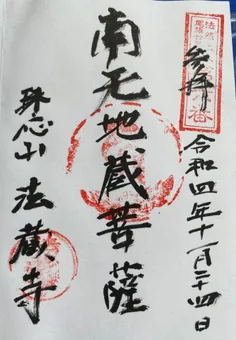 参拝
令和四年十一月二十四日
南无地蔵菩薩
珠心山 法蔵寺